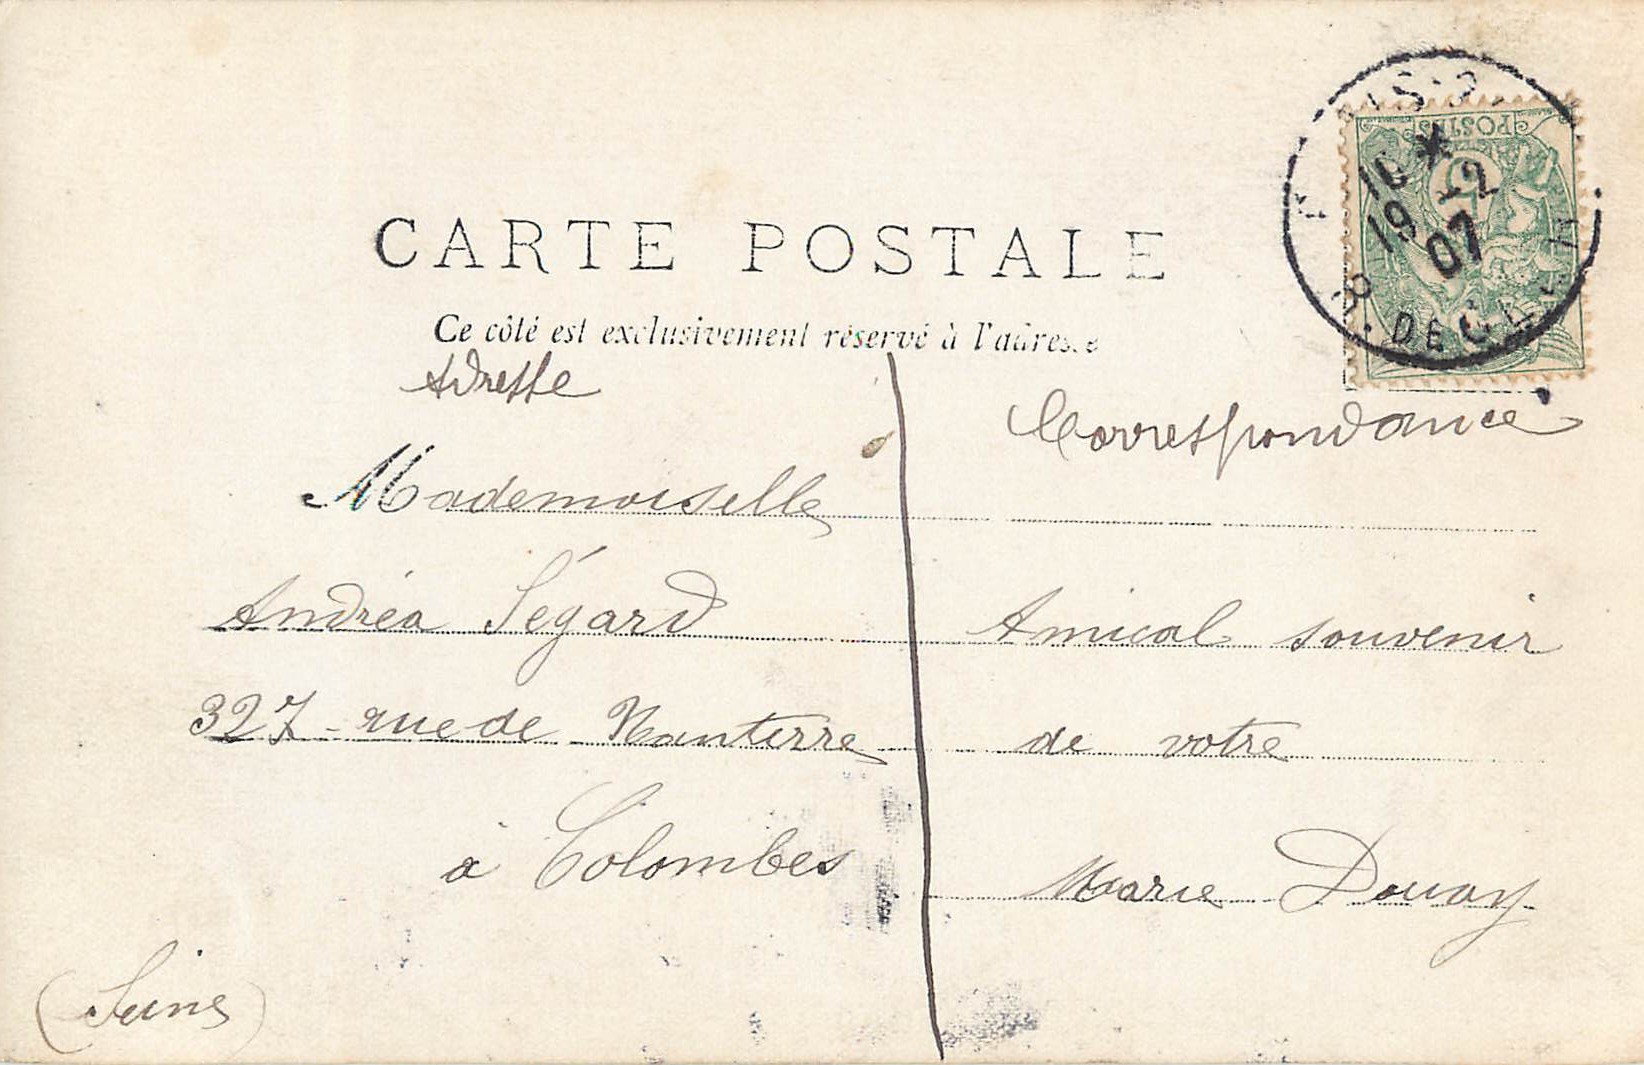 CARTE POSTALE
Ce côté est exclusivement réservé à l'adresse
Adresse
Mademoiselle
Andréa Ségard
327 - rue de Nanterre
à Colombes
(Seine)
Correspondance
Amical souvenir
de votre
Marie Douay
POSTES
5
19 - 2
07